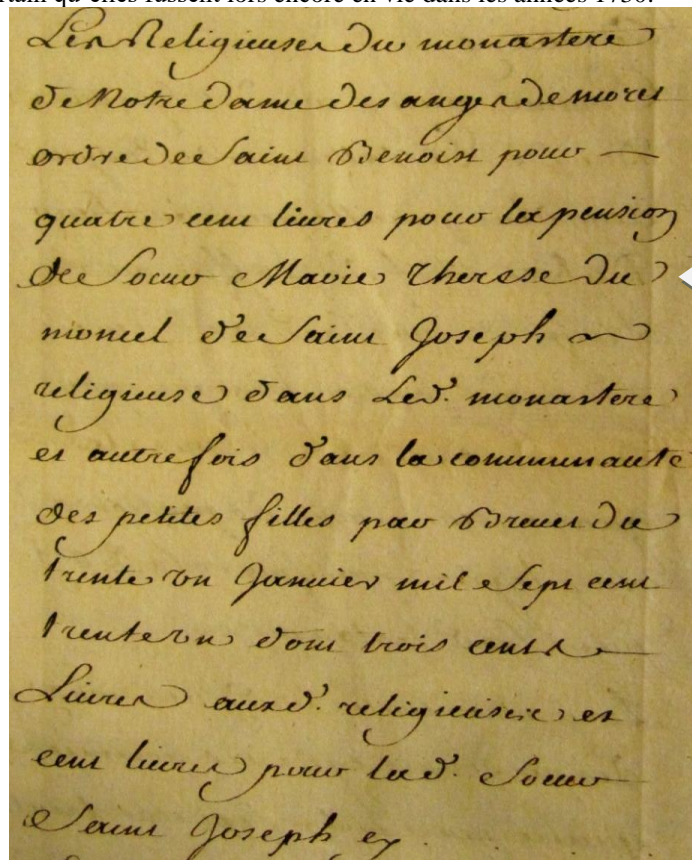 rtain qu'elles fussent lors encore en vie dans les années 1750.
Les Religieuses du monastere
de Notre dame des anges de moret
ordre de Saint Benoist pour
quatre cent livres pour la pension
de Soeur Marie therese du
moncel de Saint Joseph
religieuse dans Led. monastere
et autrefois dans la communauté
des petites filles par Brevet du
trente un Janvier mil Sept cent
trente un dont trois cents
Livres auxd. religieuses et
cent livres pour lad. Soeur
Saint Joseph